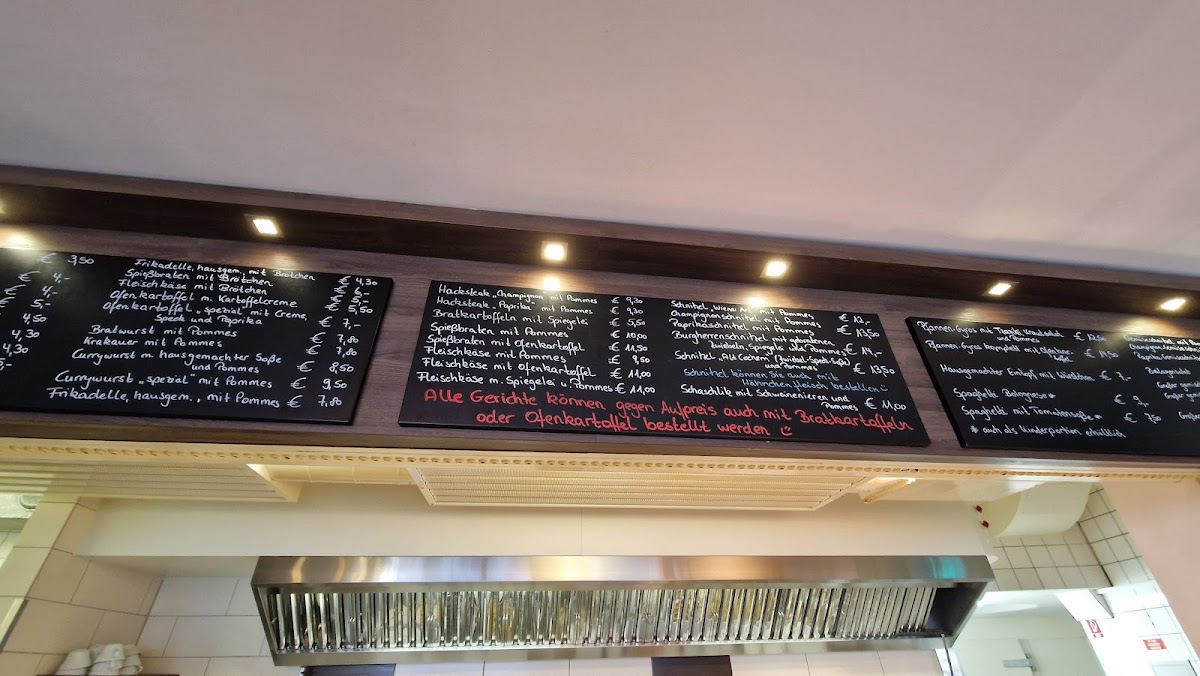 € 3,50
€ 4,-
€ 4,-
€ 5,-
4,50
4,30
4,30
Frikadelle, hausgem., mit Brötchen € 4,30
Spießbraten mit Brötchen € 6,-
Fleischkäse mit Brötchen € 5,-
Ofenkartoffel m. Kartoffelcreme € 5,50
Ofenkartoffel „spezial" mit Creme,
Speck und Paprika € 7,-
Bratwurst mit Pommes € 7,80
Krakauer mit Pommes € 7,80
Currywurst m. hausgemachter Soße
und Pommes € 8,50
Currywurst „spezial" mit Pommes € 9,50
Frikadelle, hausgem., mit Pommes € 7,80
Hacksteak „Champignon" mit Pommes € 9,30
Hacksteak „Paprika" mit Pommes € 9,30
Bratkartoffeln mit Spiegelei € 5,50
Spießbraten mit Pommes € 10,00
Spießbraten mit Ofenkartoffel € 11,50
Fleischkäse mit Pommes € 9,50
Fleischkäse mit Ofenkartoffel € 11,00
Fleischkäse m. Spiegelei u. Pommes € 11,00
Schnitzel „Wiener Art" mit Pommes € 12,-
Champignonschnitzel mit Pommes
Paprikaschnitzel mit Pommes € 13,50
Burgherrenschnitzel mit gebratenen
Zwiebeln, Spiegelei und Pommes € 14,-
Schnitzel „Alt Cochem" (Zwiebel-Speck-Soße)
und Pommes € 13,50
Schnitzel können Sie auch mit
Hähnchenfleisch bestellen ☺
Schaschlik mit Schweinenieren und
Pommes € 11,00
Alle Gerichte können gegen Aufpreis auch mit Bratkartoffeln
oder Ofenkartoffel bestellt werden ☺
Pfannen-Gyros mit Tzatziki, Krautsalat
und Pommes €
Pfannen-Gyros komplett mit Ofenkar-
toffel €
Hausgemachter Eintopf mit Würstchen € 7,-
Spaghetti Bolognese* € 9,-
Spaghetti mit Tomatensoße* € 7,50
* auch als Kinderportion erhältlich